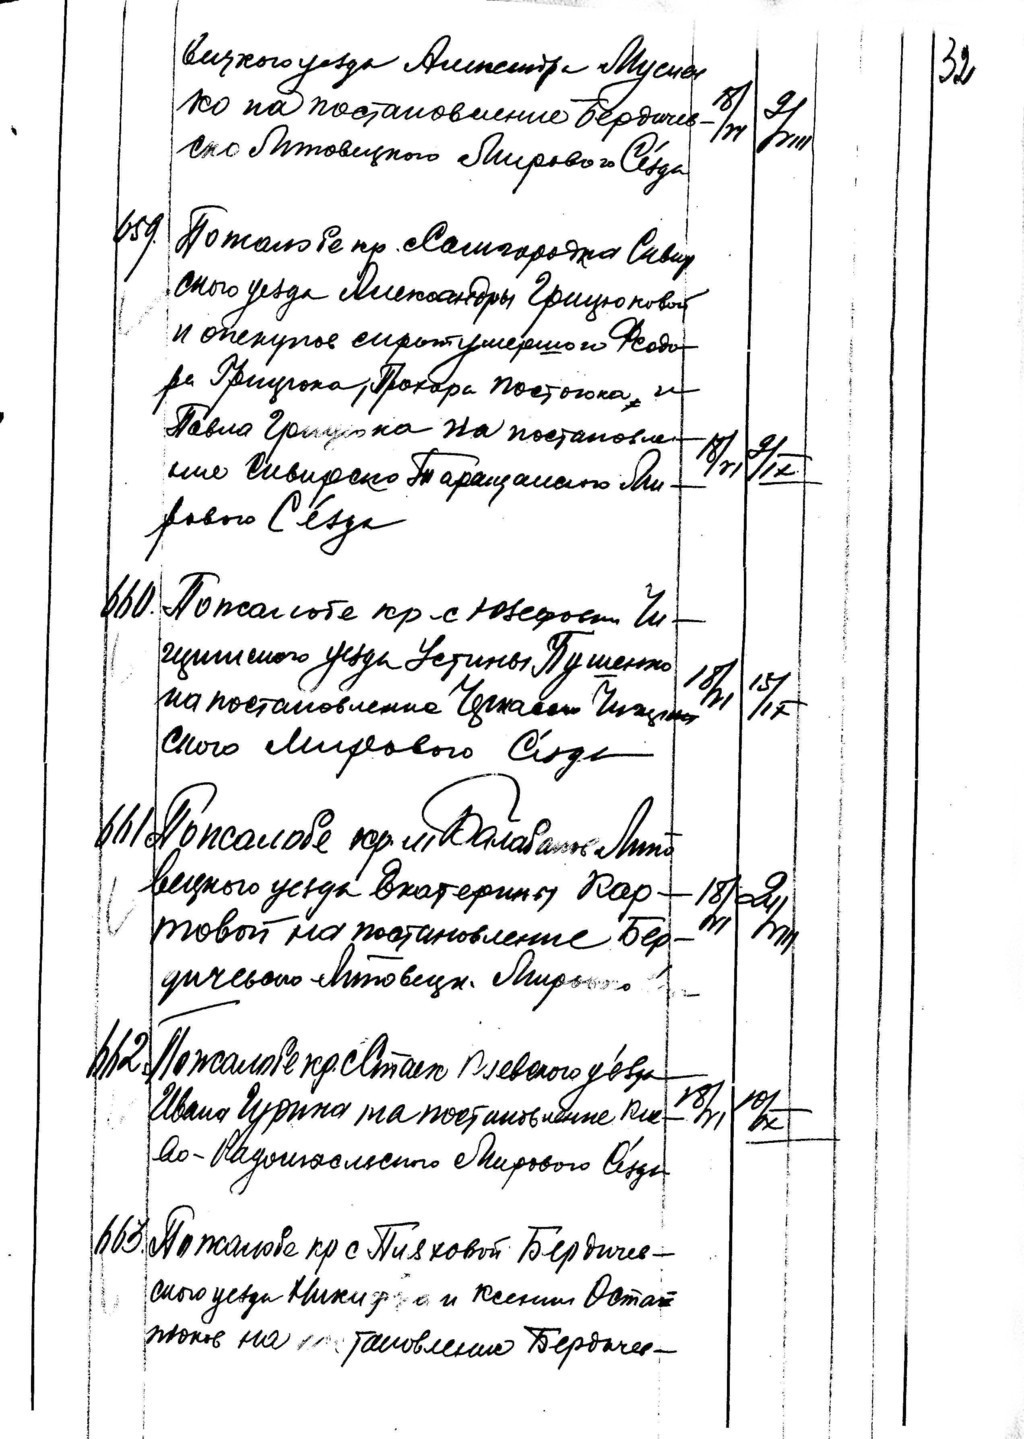 32
вецкого уезда Александра Мусиен
ко на постановление Бердичев- 18/VI 9/VIII
ско Липовецкого Мирового Сьезда
659. По жалобе кр. с Самгородка Сквир
ского уезда Александры Грицюковой
и опекунов сирот умершого Федо
ра Грицюка, Прохора Постоюка, и
Павла Грицюка на постановле- 18/VI 9/IX
ние Сквирско Таращанского Ми-
рового Сьезда
660. По жалобе кр. с Юзефовки Чи-
гиринского уезда Устины Пушенко
на постановление Черкасско Чигирин 18/VI 15/IX
ского Мирового Сьезда
661 По жалобе кр. м Балабановки Липо
вецкого уезда Екатерины Кар- 18/VI 2/VIII
товой на постановление Бер-
дичевско-Липовецк. Мирового
662. По жалобе кр. с Стаек Киевского уезда
Ивана Гурина на постановление Кие- 18/VI 10/IX
во-Радомысльского Мирового Сьезда
663. По жалобе кр с Пиковой Бердичев-
ского уезда Никифора и Ксении Остап
чюков на постановление Бердичев-